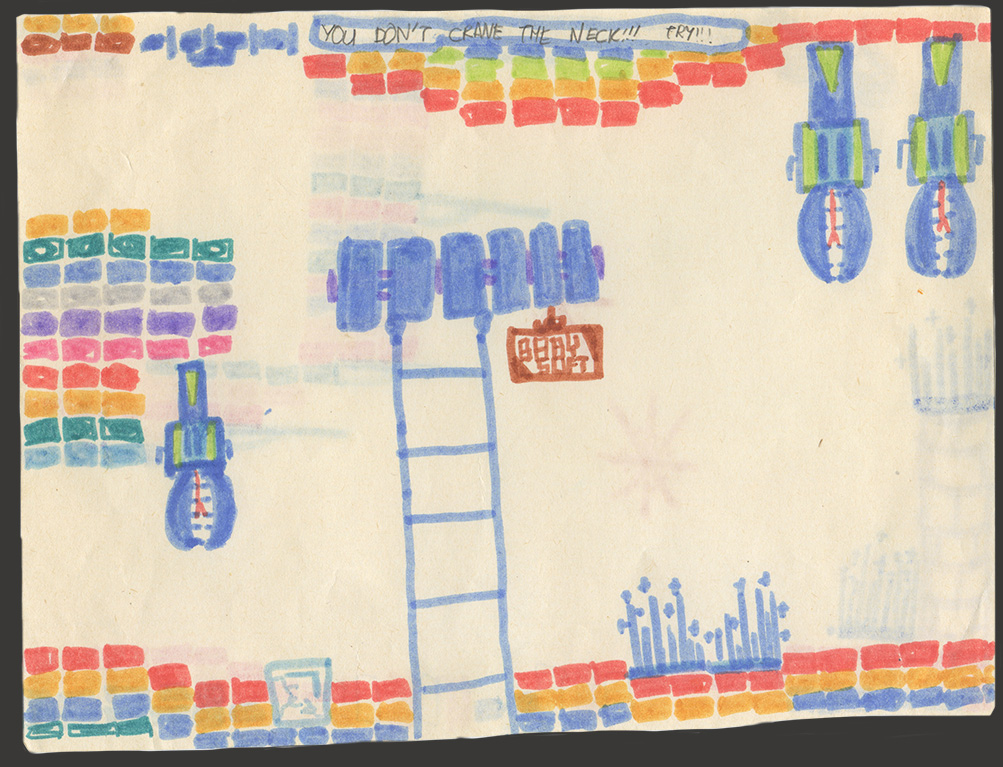 YOU DON'T CRANE THE NECK!!! TRY!!!
BABY
SOFT